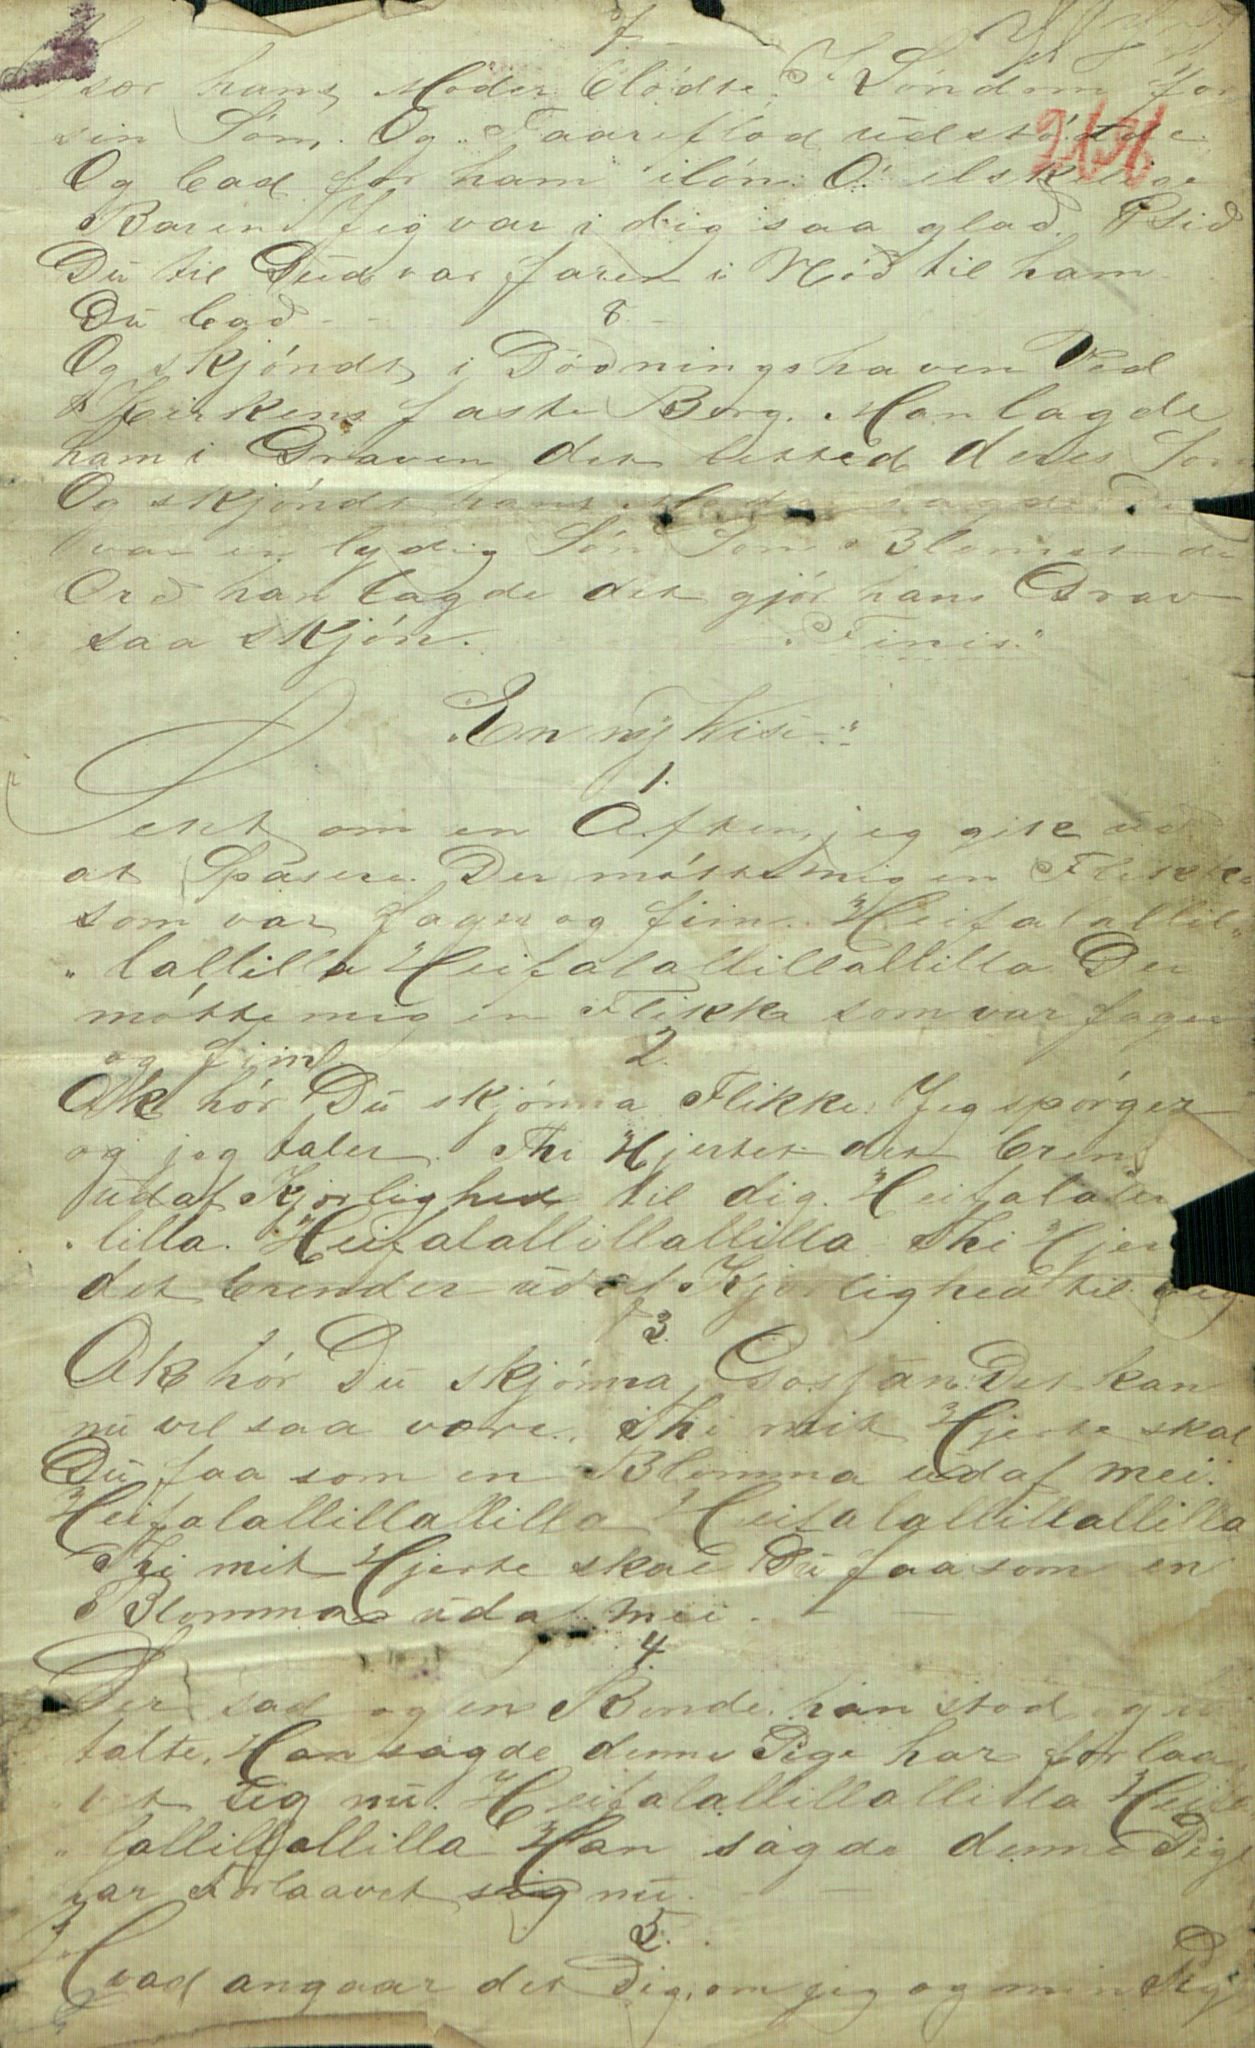 7
hans Moder blødte. I Løndom for
sin Søn. Og Taareflod udstødte
Og bad for ham i løn. O elskelige
Baren Jeg var i dig saa glad.
Du til Gud var faren i Nød til ham
Du bad - - 8 -
Og skjøndt i Dødningshaven Ved
Kirkens faste Berg. Man lagde
ham i Graven det
Og skjøndt hans sagde Du
var en lydig Søn Som Blomst
Ord han lagde det gjør hans Grav
saa skjøn. "Finis."
"En ny Vise-"
1.
Sent om en Aften, jeg gik ud
at Spasere. Der møtte mig en Flikka
som var fager og fiin. Heifalallil-
"lallilla Heifalallillallilla Der
møtte mig en Flikka som var fager
og fiin. 2.
Ak hør Du skjønna Flikke. Jeg spørger
og jeg taler. Thi Hjertet det bren
udaf Kjærlighed til dig. Heifalallil
"lilla. Heifalallillallilla Thi Hjer
det brender udaf Kjærlighed til dig
3.
Ak hør Du skjønna Gosjan. Det kan
nu vel saa være. Thi mit Hjerte skal
Du faa som en Blomma udaf mei.
Heifalallillallilla Heifalallillallilla
Thi mit Hjerte skal Du faa som en
Blomma udaf mei. -
4.
Der sad og en Bonde. han stod og
talte. Han sagde denne Pige har forlaa
vet sig nu. Heifalallillallilla Heifa
"lallillallilla Han sagde denne Pige
har Forlaavet sig nu. -
5.
Hvad angaar det Dig, om jeg og min